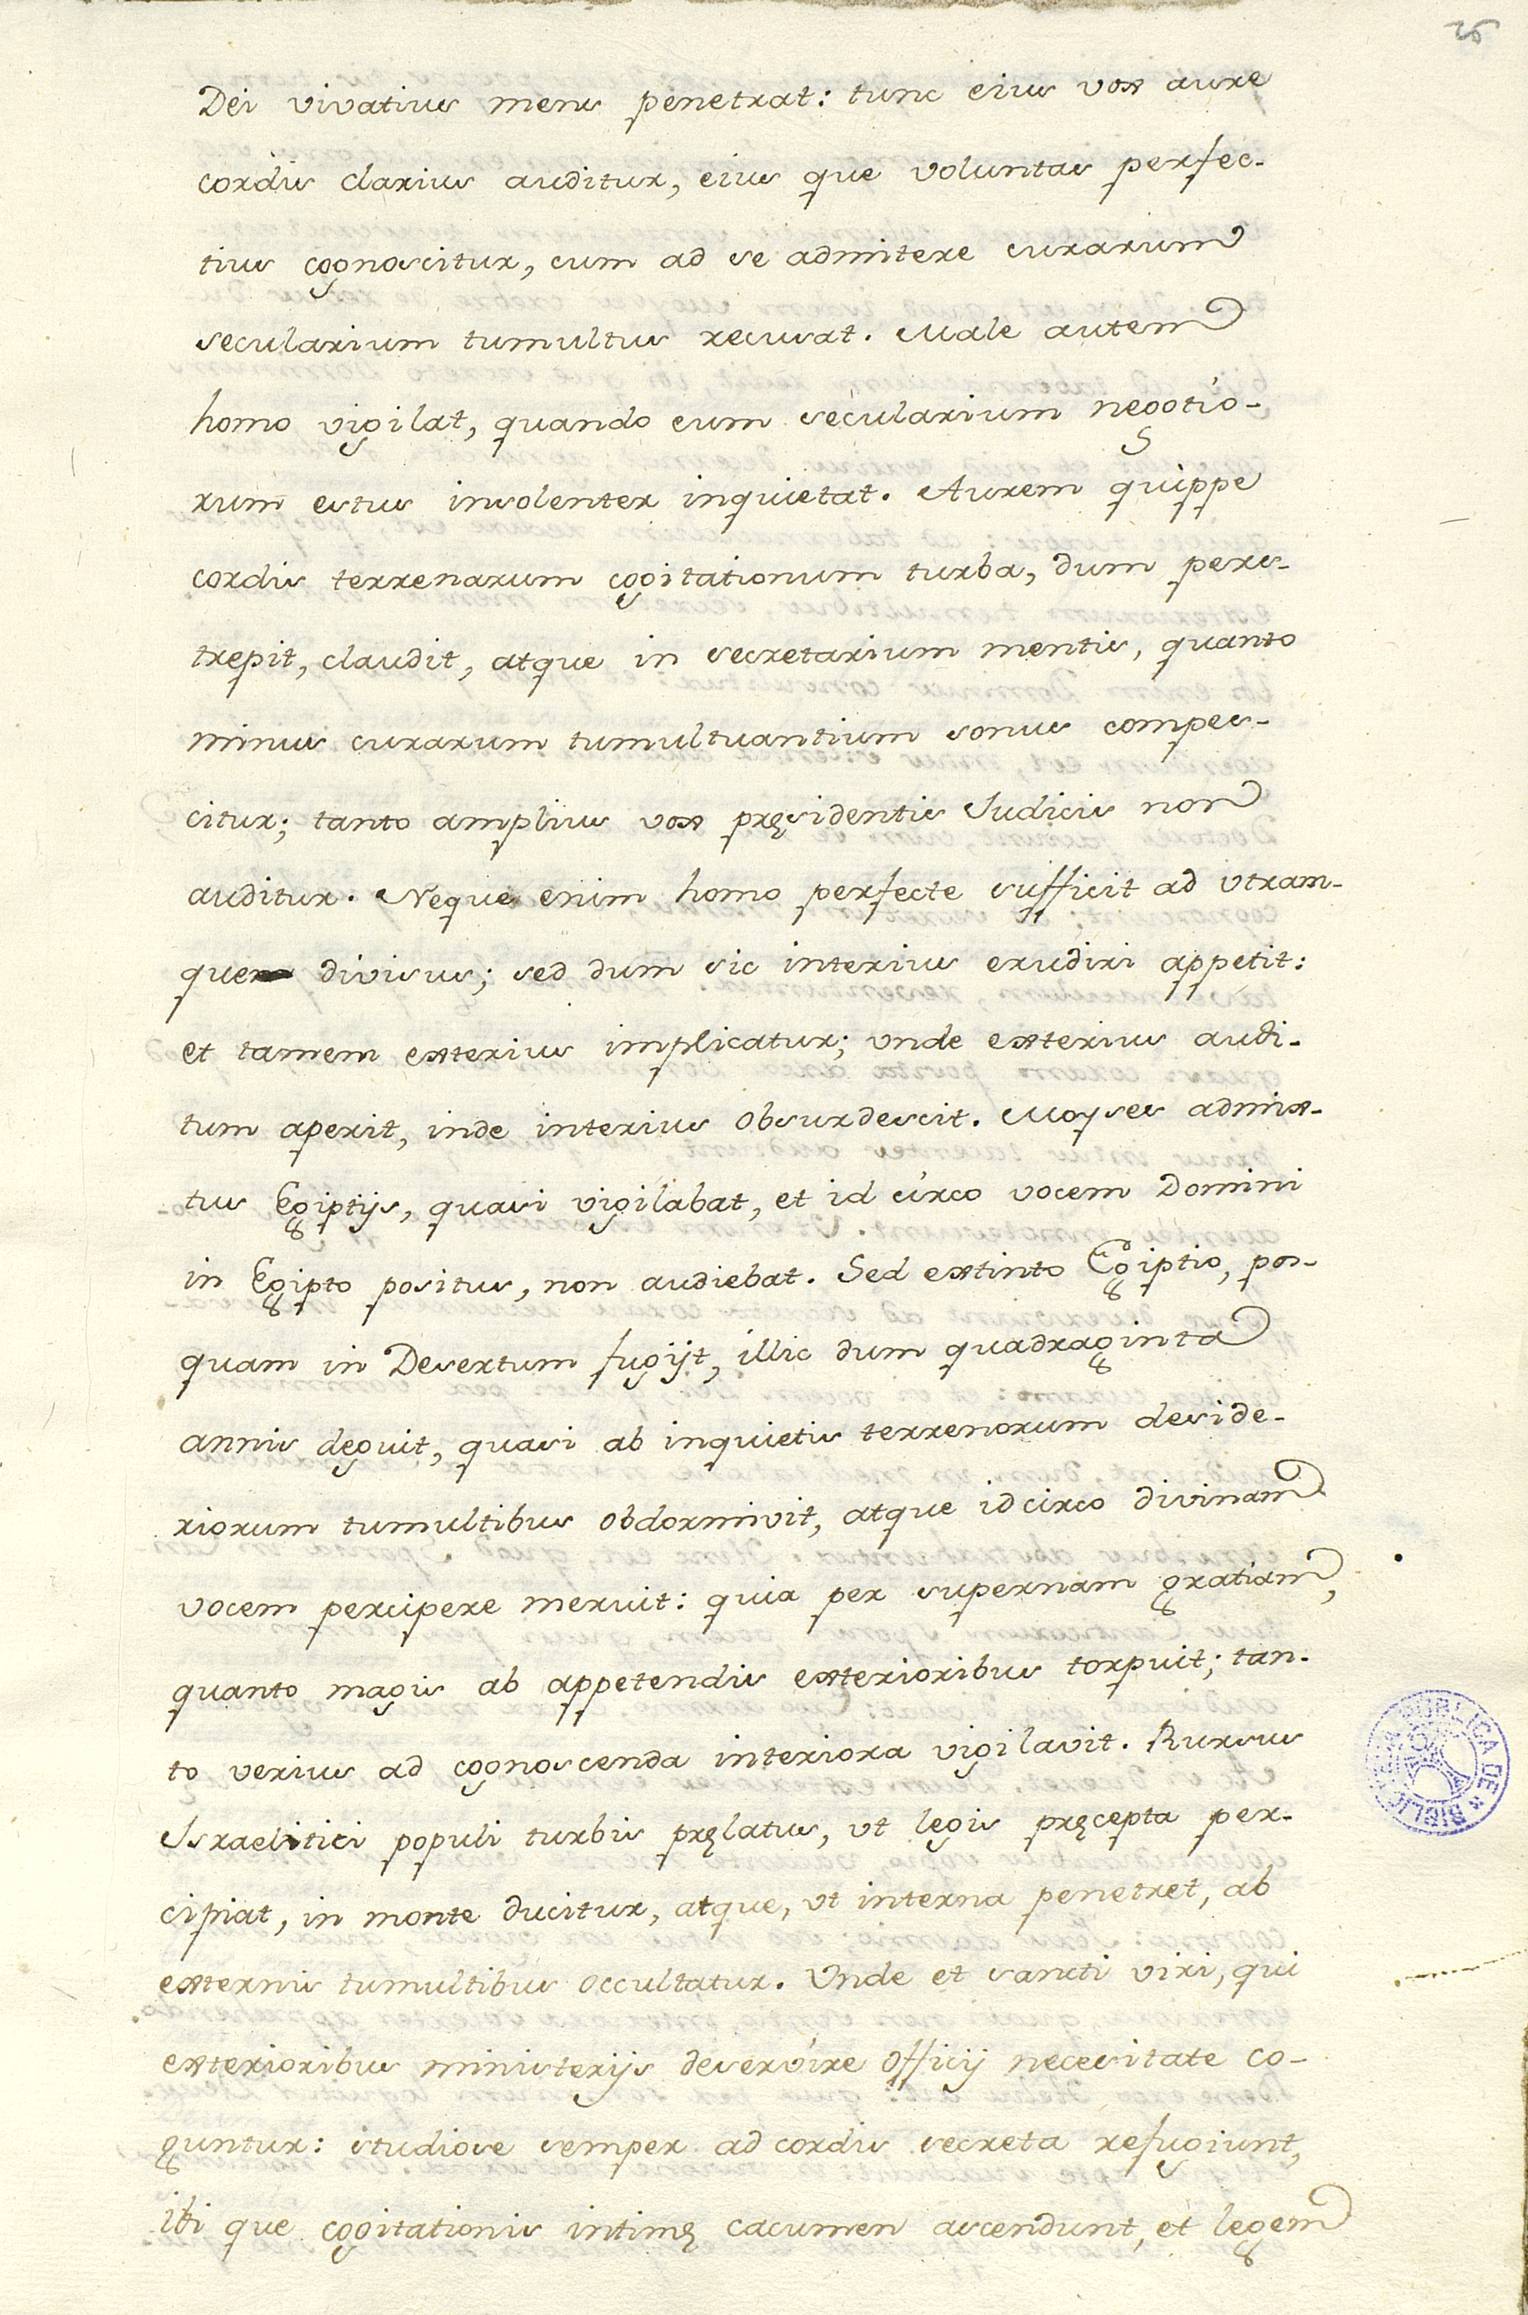 26
Dei vivatius mens penetrat: tunc eius vox aure
cordis clarius auditur, eius que voluntas perfec-
tius cognoscitur, cum ad se admitere curarum
secularium tumultus recusat. Male autem
homo vigilat, quando eum secularium negotio-
rum estus insolenter inquietat. Aurem quippe
cordis terrenarum cogitationum turba, dum pers-
trepit, claudit, atque in secretarium mentis, quanto
minus curarum tumultuantium sonus compes-
citur; tanto amplius vox pręsidentis Iudicis non
auditur. Neque enim homo perfecte sufficit ad vtram-
que divisus; sed dum sic interius erudiri appetit:
et tamem exterius implicatur; vnde exterius audi-
tum aperit, inde interius obsurdescit. Moyses admix-
tus Egiptijs, quasi vigilabat, et id circo vocem Domini
in Egipto positus, non audiebat. Sed extinto Egiptio, pos-
quam in Desertum fugijt, illic dum quadraginta
annis deguit, quasi ab inquietis terrenorum deside-
riorum tumultibus obdormivit, atque idcirco divinam
vocem percipere meruit: quia per supernam gratiam,
quanto magis ab appetendis exterioribus torpuit; tan-
to verius ad cognoscenda interiora vigilavit. Rursus
Israelitici populi turbis pręlatus, vt legis pręcepta per-
cipiat, in monte ducitur, atque, vt interna penetret, ab
externis tumultibus occultatur. Vnde et sancti viri, qui
exterioribus ministerijs deservire officij necesitate co-
guntur: studiose semper ad cordis secreta refugiunt,
ibi que cogitationis intimę cacumen ascendunt, et legem
BIBLIOTECA PUBLICA DE